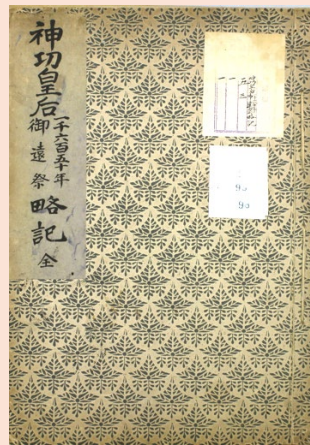 神功皇后
一千六百五十年
御遠祭
略記 全
95
95